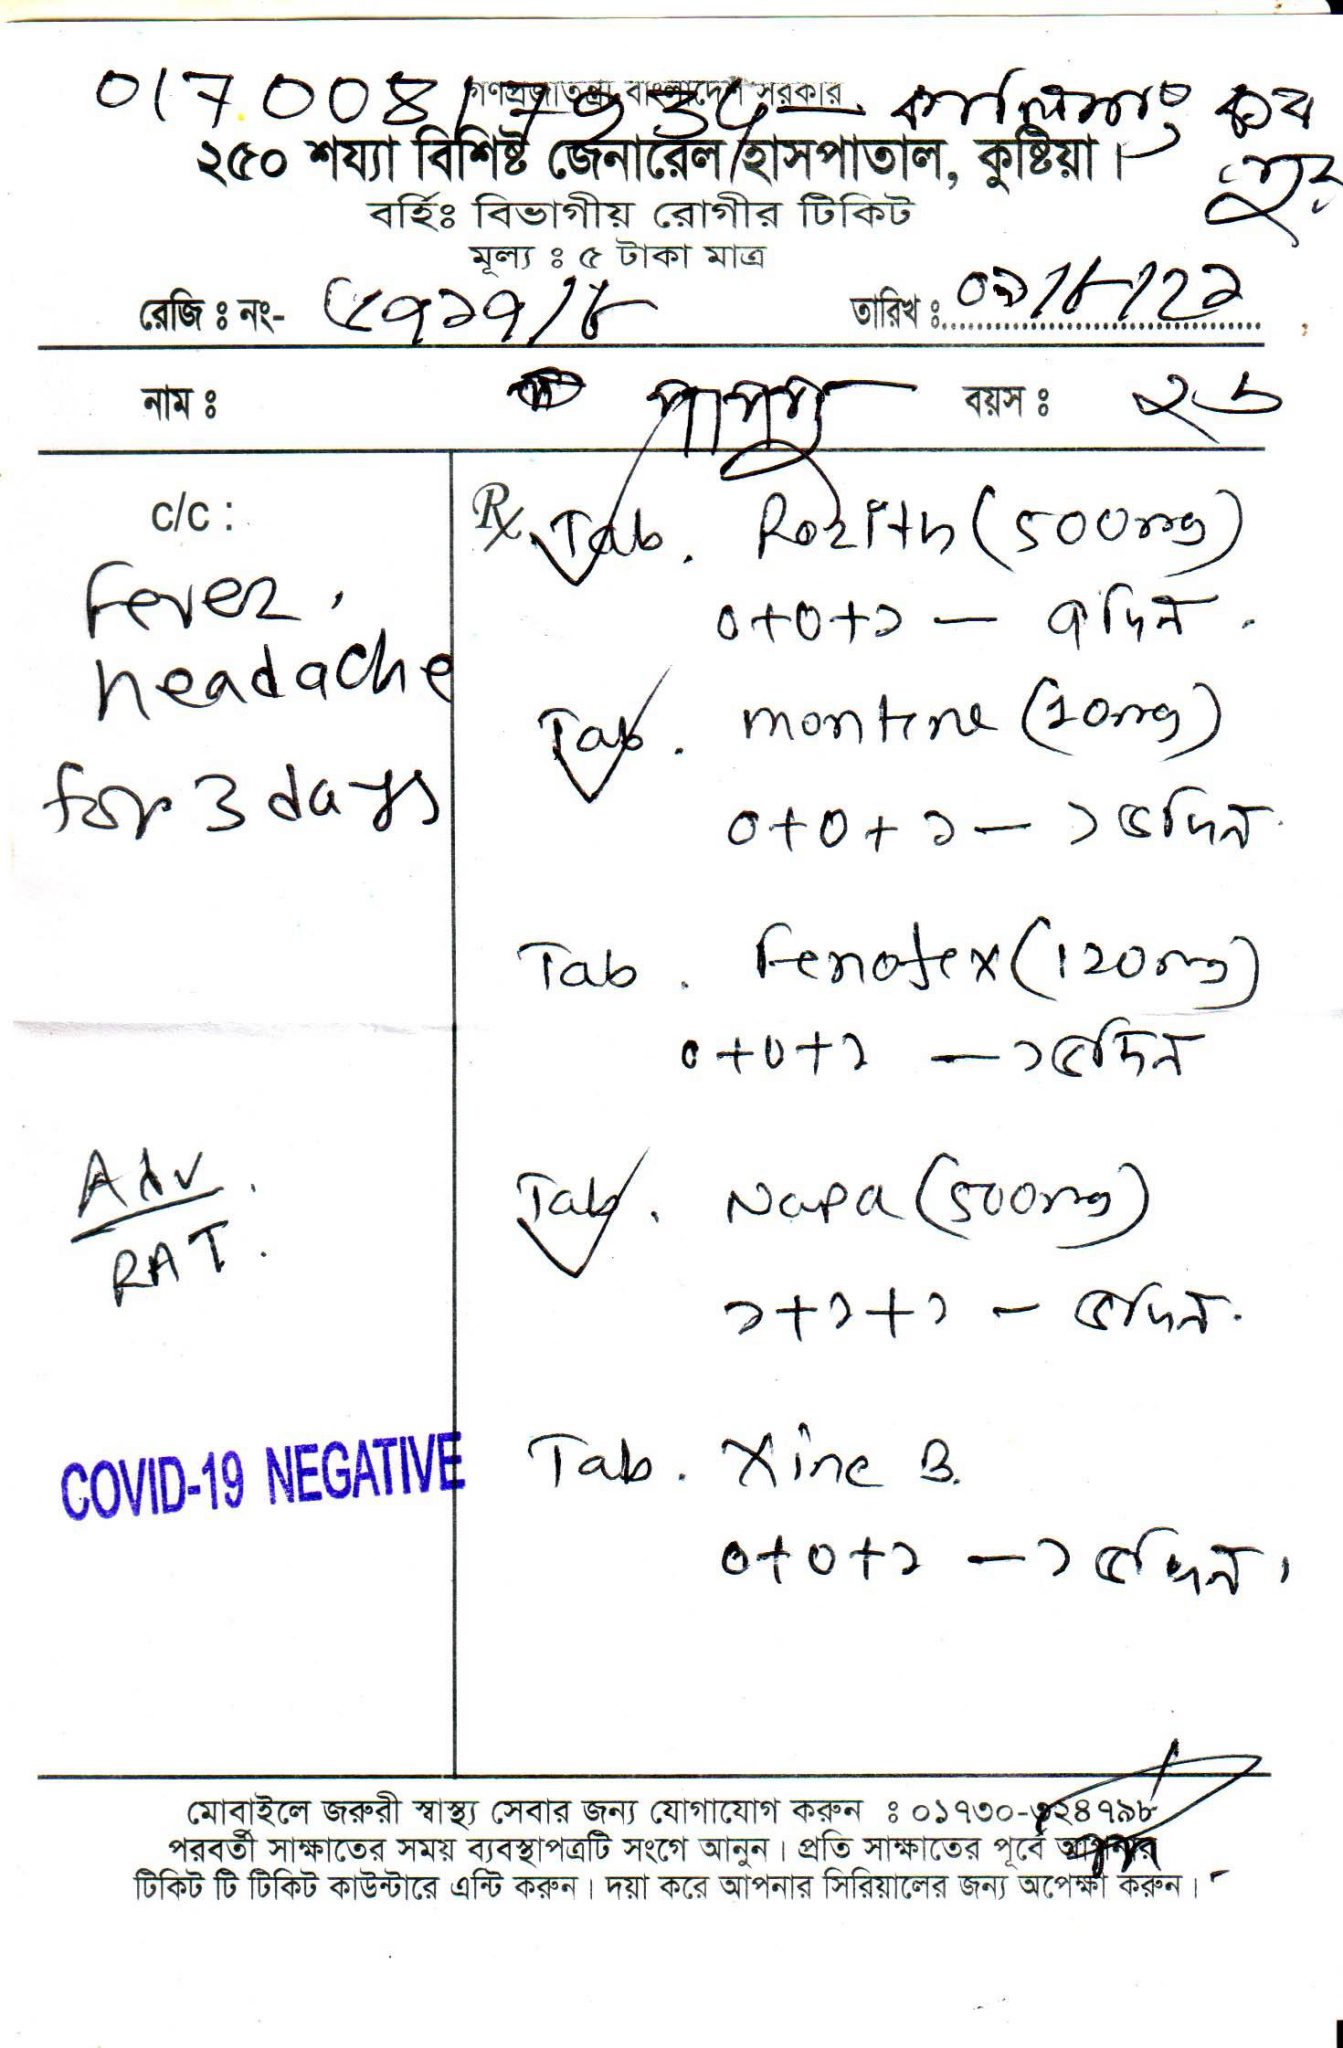 গণপ্রজাতন্ত্রী বাংলাদেশ সরকার
২৫০ শয্যা বিশিষ্ট জেনারেল হাসপাতাল, কুষ্টিয়া।
বর্হিঃ বিভাগীয় রোগীর টিকিট
মূল্য ঃ ৫ টাকা মাত্র
রেজি ঃ নং- ৫৭২৭/৮ তারিখ ঃ
নাম ঃ বয়স ঃ ২৬
c/c :
Fever,
headache
for 3 days
Adv.
RAT.
COVID-19 NEGATIVE
Rx Tab. Rozith (500mg)
০+০+১ — ৭ দিন.
Tab. montene (10mg)
০+০+১ — ১৫ দিন.
Tab. Fenofex (120mg)
০+০+১ — ১৫ দিন
Tab. Napa (500mg)
১+১+১ — ৫ দিন.
Tab. Xinc B.
০+০+১ — ১৫ দিন,
মোবাইলে জরুরী স্বাস্থ্য সেবার জন্য যোগাযোগ করুন ঃ ০১৭৩০-৩২৪৭৯৮
পরবর্তী সাক্ষাতের সময় ব্যবস্থাপত্রটি সংগে আনুন। প্রতি সাক্ষাতের পূর্বে আপনার
টিকিট টি টিকিট কাউন্টারে এন্টি করুন। দয়া করে আপনার সিরিয়ালের জন্য অপেক্ষা করুন।